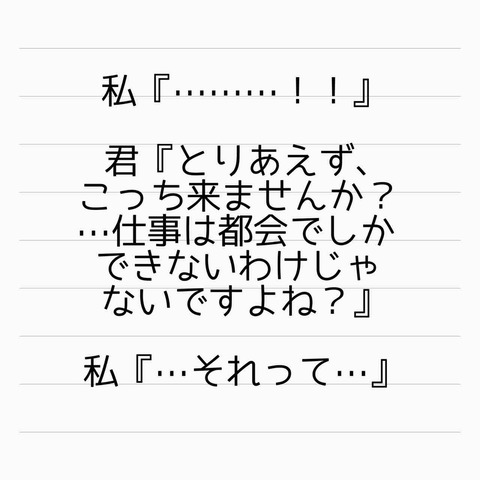 私『………！！』
君『とりあえず、
こっち来ませんか？
…仕事は都会でしか
できないわけじゃ
ないですよね？』
私『…それって…』